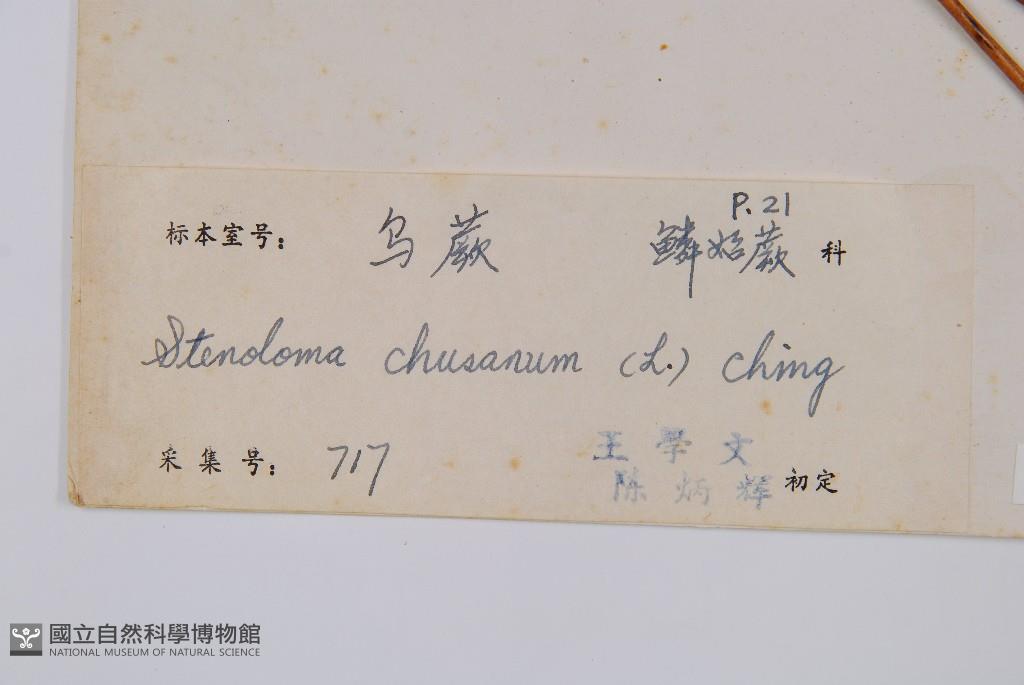 P.21
标本室号： 乌蕨 鳞始蕨 科
Stenoloma chusanum (L.) Ching
采集号： 717 王學文
陈炳辉 初定
國立自然科學博物館
NATIONAL MUSEUM OF NATURAL SCIENCE